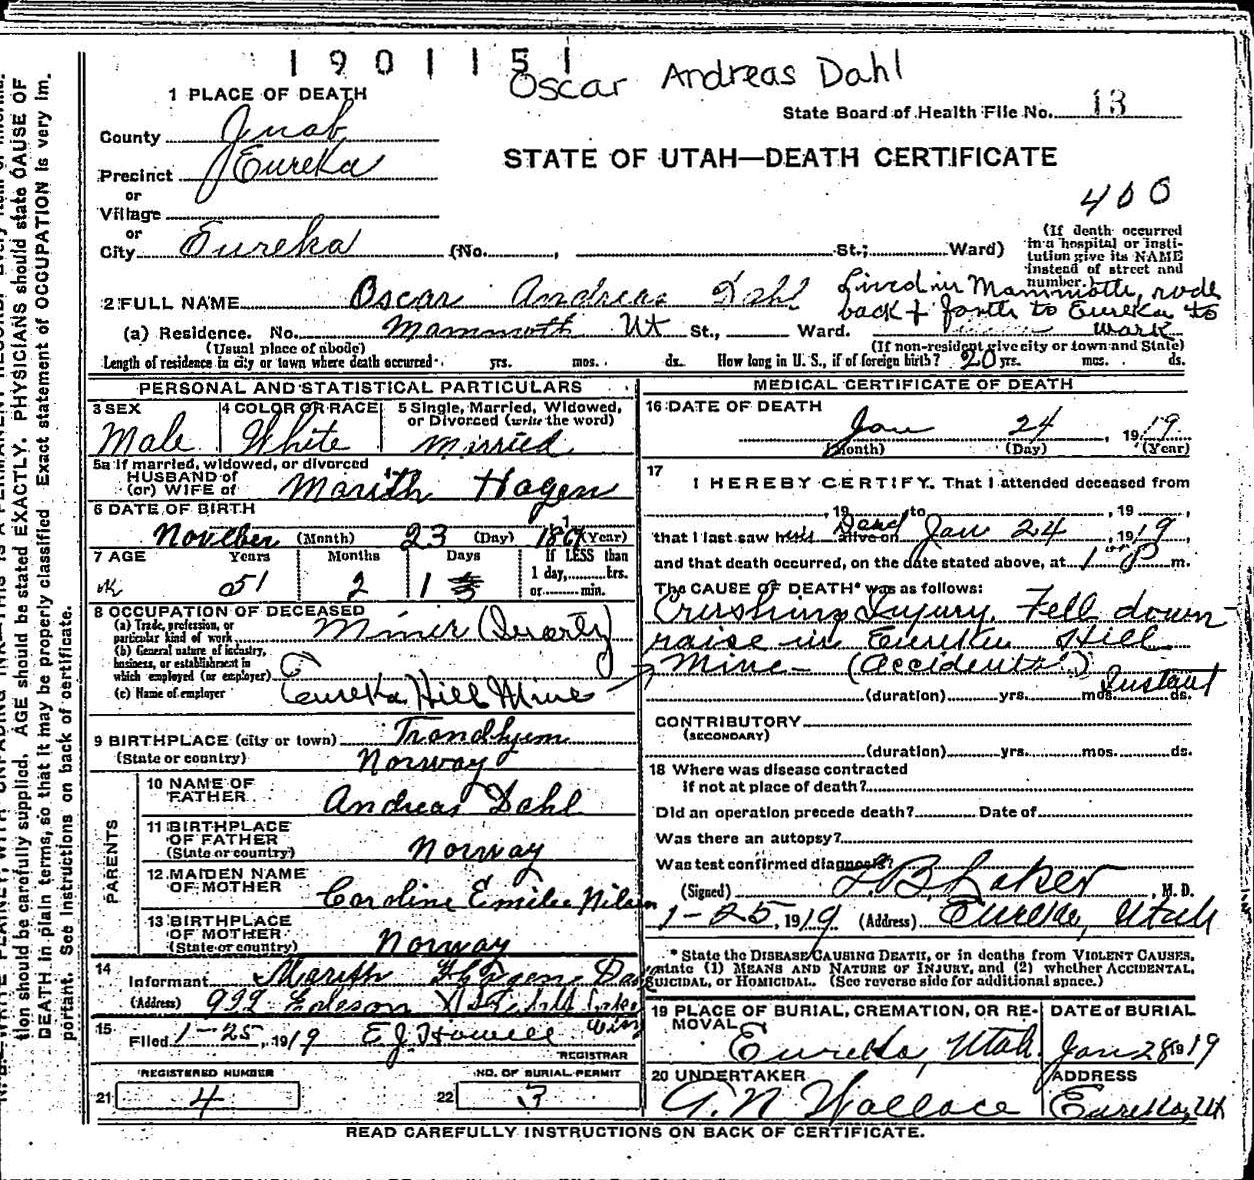 1901151
Oscar Andreas Dahl
1 PLACE OF DEATH
State Board of Health File No. 13
County Juab
STATE OF UTAH—DEATH CERTIFICATE
Precinct Eureka
or
Village
or
City Eureka (No. , St.; Ward)
400
(If death occurred in a hospital or institution give its NAME instead of street and number.
2 FULL NAME Oscar Andreas Dahl
Lived in Mammoth, rode
back & forth to Eureka to
work
(a) Residence. No. Mammoth Ut St., Ward.
(Usual place of abode)
(If non-resident give city or town and State)
Length of residence in city or town where death occurred yrs. mos. ds. How long in U. S., if of foreign birth? 20 yrs. mos. ds.
PERSONAL AND STATISTICAL PARTICULARS
3 SEX
Male
4 COLOR OR RACE
White
5 Single, Married, Widowed, or Divorced (write the word)
Married
5a If married, widowed, or divorced
HUSBAND of
(or) WIFE of Marith Hagen
6 DATE OF BIRTH
November (Month) 23 (Day) 1867 (Year)
7 AGE Years Months Days If LESS than
51 2 1
1 day, hrs.
or min.
8 OCCUPATION OF DECEASED
(a) Trade, profession, or particular kind of work Miner (Quartz)
(b) General nature of industry, business, or establishment in which employed (or employer)
(c) Name of employer Eureka Hill Mine
9 BIRTHPLACE (city or town) Trondhjem
(State or country) Norway
PARENTS
10 NAME OF FATHER Andreas Dahl
11 BIRTHPLACE OF FATHER (State or country) Norway
12 MAIDEN NAME OF MOTHER Caroline Emilie Nilsen
13 BIRTHPLACE OF MOTHER (State or country) Norway
14
Informant Marith
(Address) 939
15
Filed 1-25, 1919 E.J. Howell
REGISTRAR
REGISTERED NUMBER
21 4
NO. OF BURIAL PERMIT
22 3
MEDICAL CERTIFICATE OF DEATH
16 DATE OF DEATH
Jan 24, 1919
(Month) (Day) (Year)
17
I HEREBY CERTIFY. That I attended deceased from
, 19 , to , 19 ,
that I last saw him alive on Dead Jan 24, 1919,
and that death occurred, on the date stated above, at 1 P m.
The CAUSE OF DEATH* was as follows:
Crushing Injury. Fell down
raise in Eureka Hill
Mine— (Accidental)
Instant
(duration) yrs. mos. ds.
CONTRIBUTORY
(SECONDARY)
(duration) yrs. mos. ds.
18 Where was disease contracted
if not at place of death?
Did an operation precede death? Date of
Was there an autopsy?
Was test confirmed diagnosis?
(Signed) , M. D.
1-25, 1919 (Address) Eureka, Utah
* State the DISEASE CAUSING DEATH, or in deaths from VIOLENT CAUSES,
state (1) MEANS AND NATURE OF INJURY, and (2) whether ACCIDENTAL,
SUICIDAL, or HOMICIDAL. (See reverse side for additional space.)
19 PLACE OF BURIAL, CREMATION, OR REMOVAL
Eureka, Utah
DATE of BURIAL
Jan 28 1919
20 UNDERTAKER
A. N. Wallace
ADDRESS
Eureka, Ut
READ CAREFULLY INSTRUCTIONS ON BACK OF CERTIFICATE.
tion should be carefully supplied. AGE should be stated EXACTLY. PHYSICIANS should state CAUSE OF
DEATH in plain terms, so that it may be properly classified. Exact statement of OCCUPATION is very im-
portant. See Instructions on back of certificate.